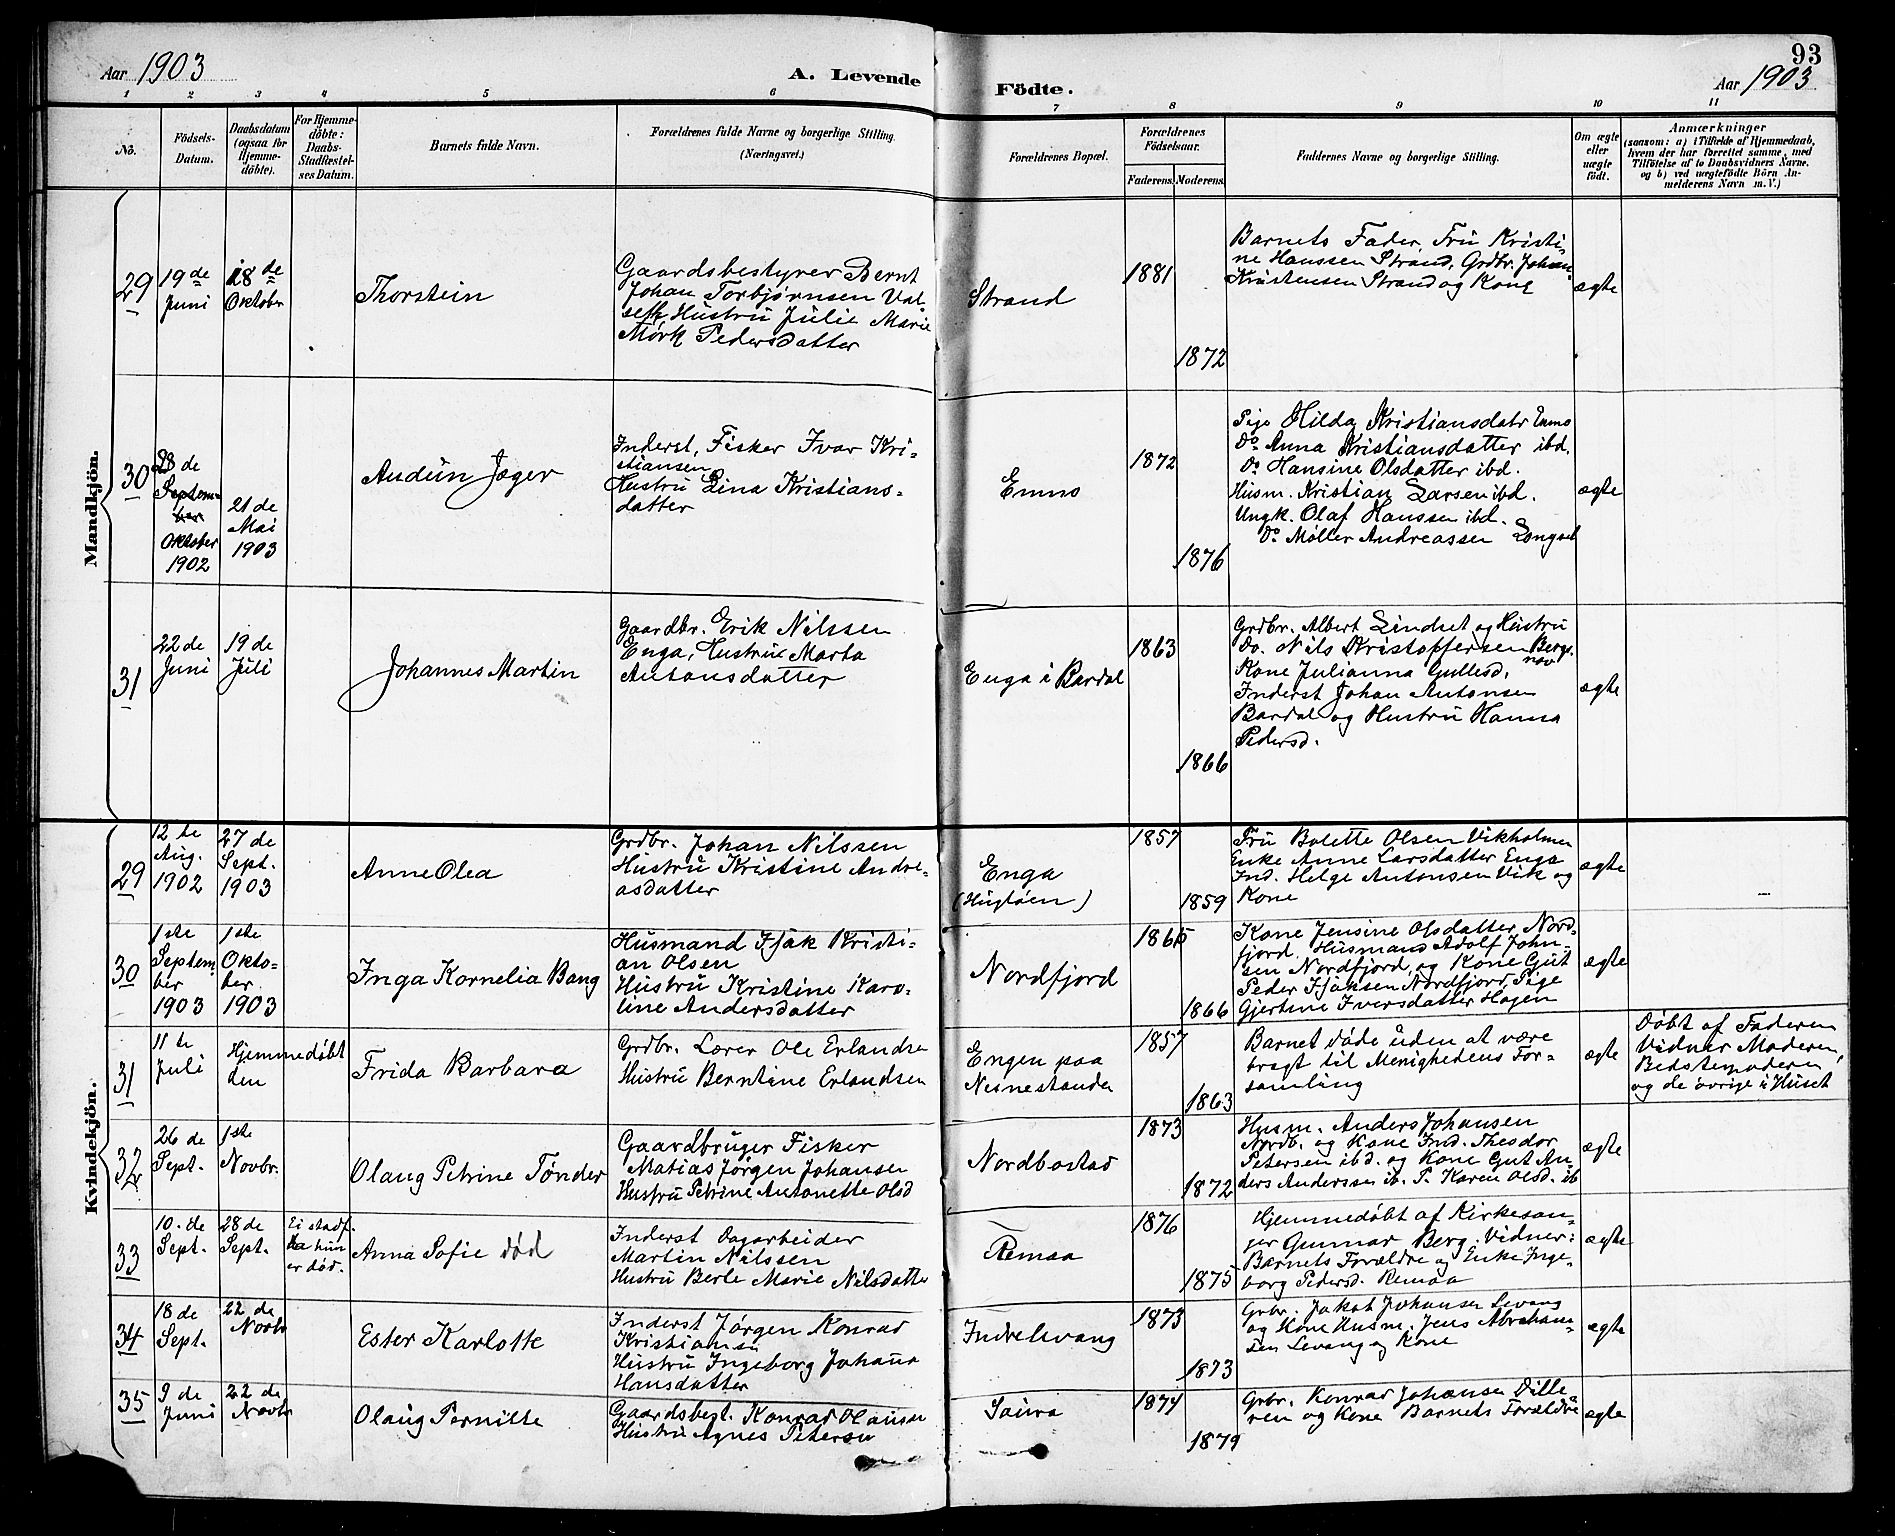 Aar 1903
A. Levende
Födte.
93
Aar 1903
1 2 3 4 5 6 7 8 9 10 11
No.
Födsels-
Datum.
Daabsdatum
(ogsaa for
Hjemme-
döbte).
For Hjemme-
döbte:
Daabs-
Stadfæstel-
ses Datum.
Barnets fulde Navn.
Forældrenes fulde Navne og borgerlige Stilling
(Næringsvei.)
Forældrenes Bopæl.
Forældrenes
Födselsaar.
Faderens. Moderens.
Faddernes Navne og borgerlige Stilling.
Om ægte
eller
uægte
födt.
Anmærkninger
(saasom: a) i Tilfælde af Hjemmedaab,
hvem der har forrettet samme, med
Tilföielse af to Daabsvidners Navne,
og b) ved uægtefödte Börn An-
melderens Navn m. V.)
Mandkjön.
29
19 de
Juni
18 de
Oktobr
Thorstein
Gaardsbestyrer Bernt
Johan Torbjørnsen
Hustru Julie Marie
Mørk Pedersdatter
Strand
1881
1872
Barnets Fader, Fru Kristi-
ne Hanssen Strand, Grdbr. Johan
Kristensen Strand og Kone
ægte
30
28 de
Septem-
ber
Oktober
1902
21 de
Mai
1903
Audun Jæger
Inderst, Fisker Ivar Kri-
stiansen
Hustru Lina Kristians-
datter
Emno
1872
1876
Pige Hilda Kristiansdatr Emno
Do. Anna Kristiansdatter ibd.
Do. Hansine Olsdatter ibd.
Husm. Kristian Larsen ibd.
Ungk. Olaf Hanssen ibd.
Do. Møller Andreassen Longset
ægte
31
22 de
Juni
19 de
Juli
Johannes Martin
Gaardbr. Erik Nilssen
Enga, Hustru Marta
Antonsdatter
Enga i Bardal
1863
1866
Grdbr. Albert Lindset og Hustru
Do. Nils Kristoffersen Bergs-
nov
Kone Julianna Gullesd.
Inderst Johan Antonsen
Bardal og Hustru Hanna
Pedersd.
ægte
Kvindekjön.
29
12 te
Aug.
1902
27 de
Sept.
1903
Anne Olea
Grdbr. Johan Nilssen
Hustru Kristine Andre-
asdatter
Enga
(Hugløen)
1857
1859
Fru Bolette Olsen Vikholmen
Enke Anne Larsdatter Enga
Ind. Helge Antonsen Vik og
Kone
ægte
30
1ste
Septem-
ber
1903
1ste
Okto-
ber.
1903
Inga Kornelia Bang
Husmand Isak Kristi-
an Olsen
Hustru Kristine Karo-
line Andersdatter
Nordfjord
1865
1866
Kone Jensine Olsdatter, Nord-
fjord, Husmand Adolf John-
sen Nordfjord, og Kone Gut
Peder Isaksen Nordfjord, Pige
Gjertine Iversdatter Hagen
ægte
31
11 te
Juli
Hjemmedøbt
den
Frida Barbara
Grdbr. Lærer Ole Erlandse
Hustru Berntine Erlandsen
Engen paa
Nesnestranden
1857
1863
Barnet døde uden at være
bragt til Menighedens For-
samling
ægte
Døbt af Faderen
Vidner Moderen,
Bedstemoderen
og de øvrige i Huset
32
26 de
Sept.
1ste
Novbr.
Olaug Petrine Tønder
Gaardbruger Fisker
Matias Jørgen Johansen
Hustru Petrine Antonette Olsd
Nordbostad
1873
1872
Husm. Anders Johansen
Nordb. og Kone Ind. Theodor
Petersen ibd. og Kone Gut An-
ders Anderssen ib. P. Karen Olsd. ib
ægte
33
10. de
Sept.
28 de
Sept.
Ei stadf.
da hun
er død.
Anna Sofie død
Inderst Dagarbeider
Martin Nilssen
Hustru Berle Marie Nilsdatter
Remaa
1876
1875
Hjemmedøbt af Kirkesan-
ger Gunnar Berg. Vidner:
Barnets Forældre og Enke Inge-
borg Pedersd. Remaa
ægte
34
18 de
Sept.
22 de
Novbr
Ester Karlotte
Inderst Jørgen Konrad
Kristiansen
Hustru Ingeborg Johanna
Hansdatter
Indrelevang
1873
1873
Grbr. Jakob Johansen Levang
og Kone Husm. Jens Abraham-
sen Levang og Kone
ægte
35
9 de
Juni
22 de
Novbr
Olaug Pernille
Gaardsbest. Konrad Olaisen
Hustru Agnes Petersen
Saura
1874
1879
Grbr. Konrad Johansen Dille-
ren og Kone Barnets Forældre
ægte